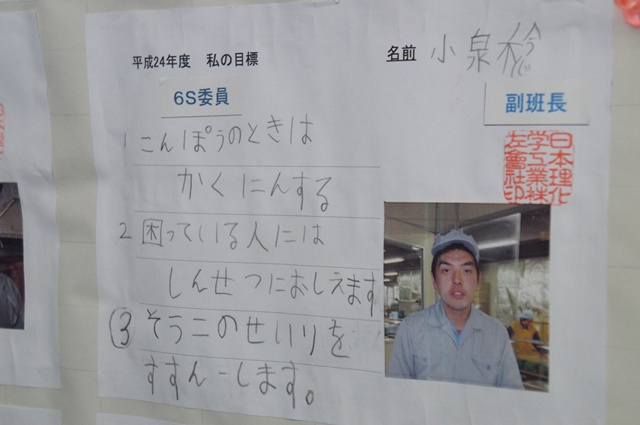 平成24年度 私の目標
名前 小泉
6S委員
副班長
1 こんぽうのときは
かくにんする
2 困っている人には
しんせつにおしえます
③ そうこのせいりを
すすんーします。
日本理化
学工業株
式會社印